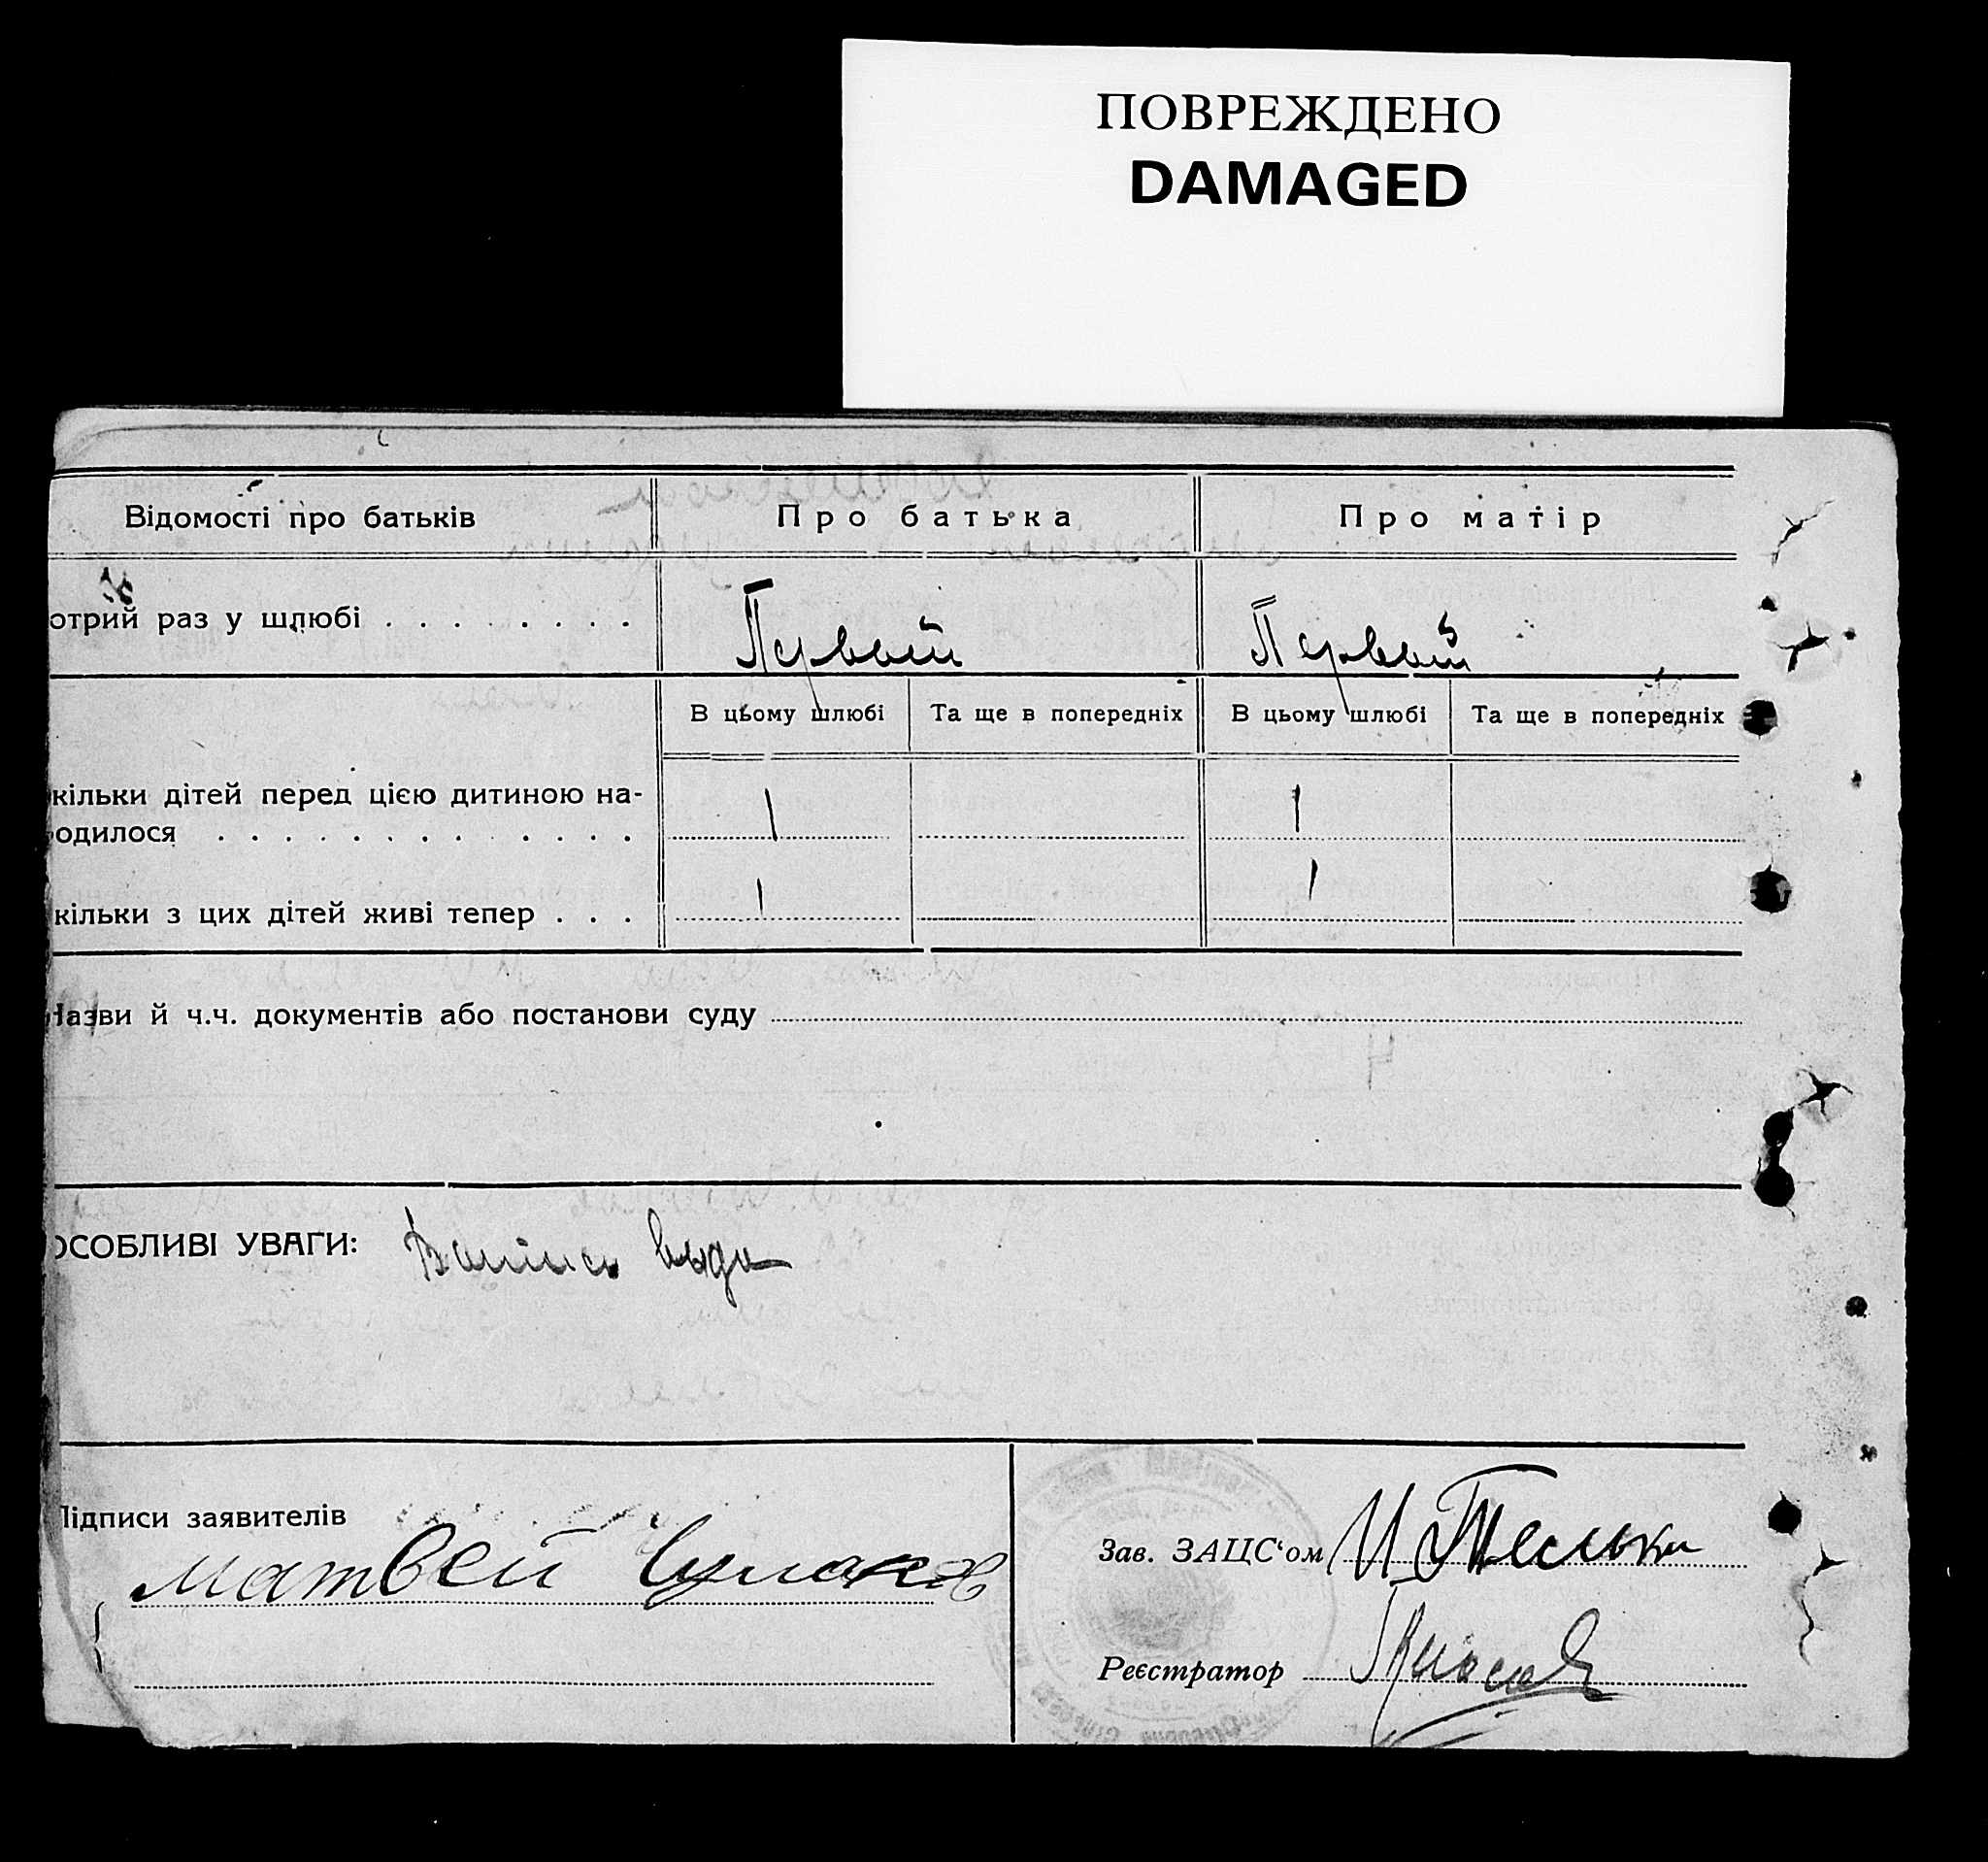 ПОВРЕЖДЕНО
DAMAGED
Відомості про батьків
Про батька
Про матір
отрий раз у шлюбі . . . . . . . .
Первый
Первый
В цьому шлюбі
Та ще в попередніх
В цьому шлюбі
Та ще в попередніх
кільки дітей перед цією дитиною на-
родилося . . . . . . . . . . . . .
1
1
кільки з цих дітей живі тепер . . .
1
1
Назви й ч.ч. документів або постанови суду
ОСОБЛИВІ УВАГИ:
Підписи заявителів
матвей
Зав. ЗАЦС‘ом
Реєстратор